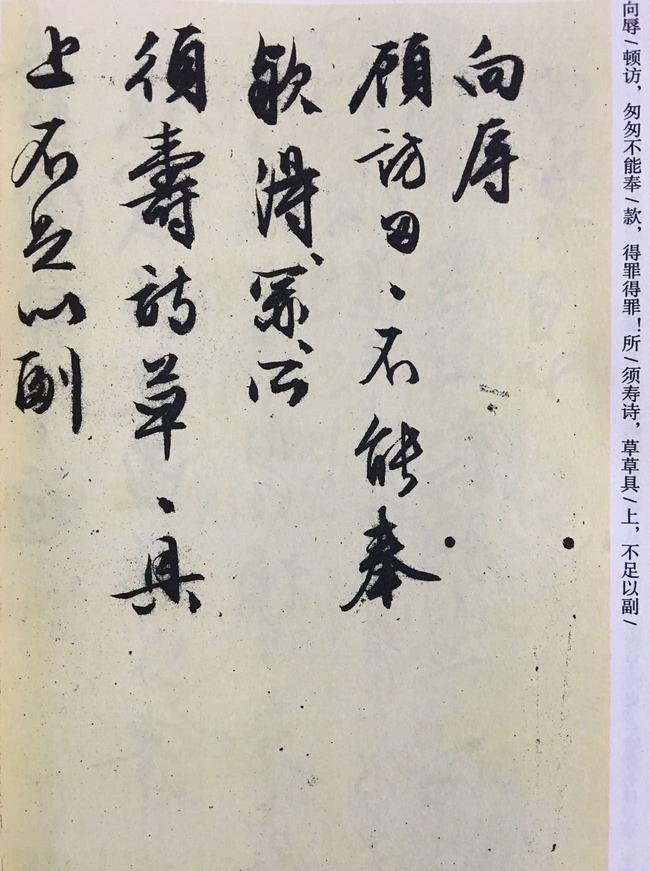 向辱/顿访，匆匆不能奉/款，得罪得罪！所/须寿诗，草草具/上，不足以副/
向辱
顾訪匆、不能奉
欵得、罪、所
須壽詩草、具
上不足以副